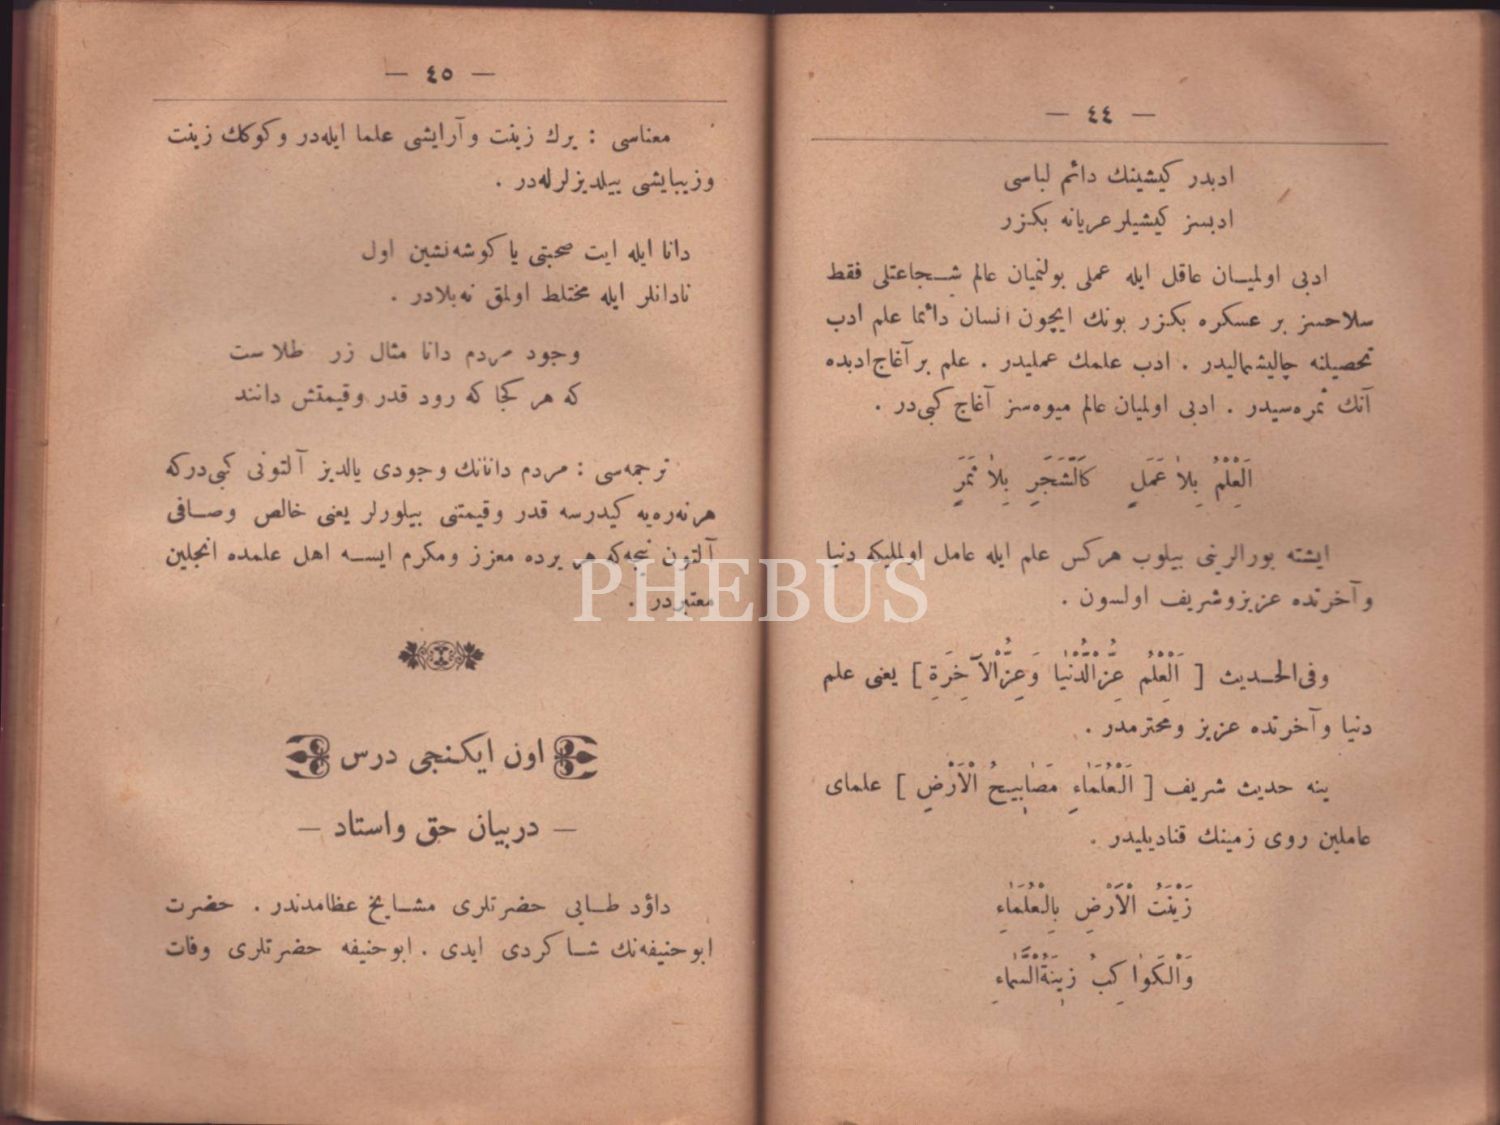 — ٤٤ —
ادبدر كیشینك دائم لباسی
ادبسز كیشیلر عریانه بكزر
ادبی اولمیان عاقل ایله عملی بولنمیان عالم شجاعتلی فقط
سلاحسز بر عسكره بكزر بونك ایچون انسان دائما علم ادب
تحصیلنه چالیشمالیدر . ادب علمك عملیدر . علم بر آغاج ادبده
آنك ثمره‌سیدر . ادبی اولمیان عالم میوه‌سز آغاج كبی در .
اَلْعِلْمُ بِلاٰ عَمَلٍ كَالشَّجَرِ بِلاٰ ثَمَرٍ
ایشته بورالرینی بیلوب هركس علم ایله عامل اولملیكه دنیا
و آخرتده عزیز و شریف اولسون .
وفی الحدیث [ اَلْعِلْمُ عِزُّ الدُّنْیٰا وَ عِزُّ الْآخِرَةِ ] یعنی علم
دنیا و آخرتده عزیز و محترمدر .
ینه حدیث شریف [ اَلْعُلَمٰاءِ مَصٰابِیحُ الْاَرْضِ ] علمای
عاملین روی زمینك قنادیلیدر .
زَیْنَتُ الْاَرْضِ بِالْعُلَمٰاءِ
وَالْكَوٰاكِبُ زِینَةُ السَّمٰاءِ
— ٤٥ —
معناسی : یرك زینت و آرایشی علما ایله‌در و كوكك زینت
و زیبایشی بیلدیزلرله‌در .
دانا ایله ایت صحبتی یا كوشه‌نشین اول
نادانلر ایله مختلط اولمق نه بلادر .
وجود مردم دانا مثال زر طلاست
كه هر كجا كه رود قدر و قیمتش دانند
ترجمه‌سی : مردم دانانك وجودی یالدیز آلتونی كبی دركه
هر نه‌ره‌یه كیدرسه قدر و قیمتنی بیلورلر یعنی خالص و صافی
آلتون نیجه‌كه هر یرده معزز و مكرم ایسه اهل علمده انجلین
معتبردر .
PHEBUS
اون ایكنجی درس
— در بیان حق و استاد —
داؤد طایی حضرتلری مشایخ عظامدندر . حضرت
ابو حنیفه‌نك شاكردی ایدی . ابو حنیفه حضرتلری وفات